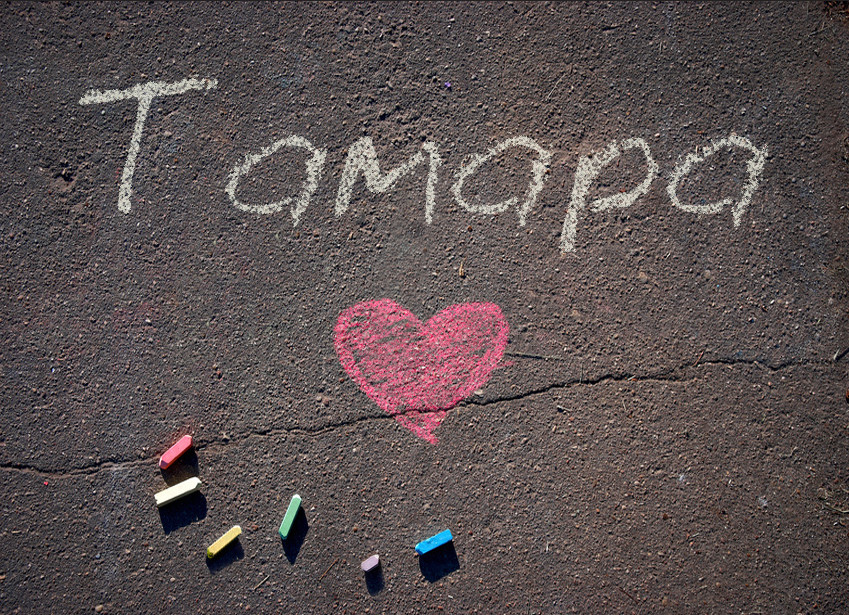 Тамара